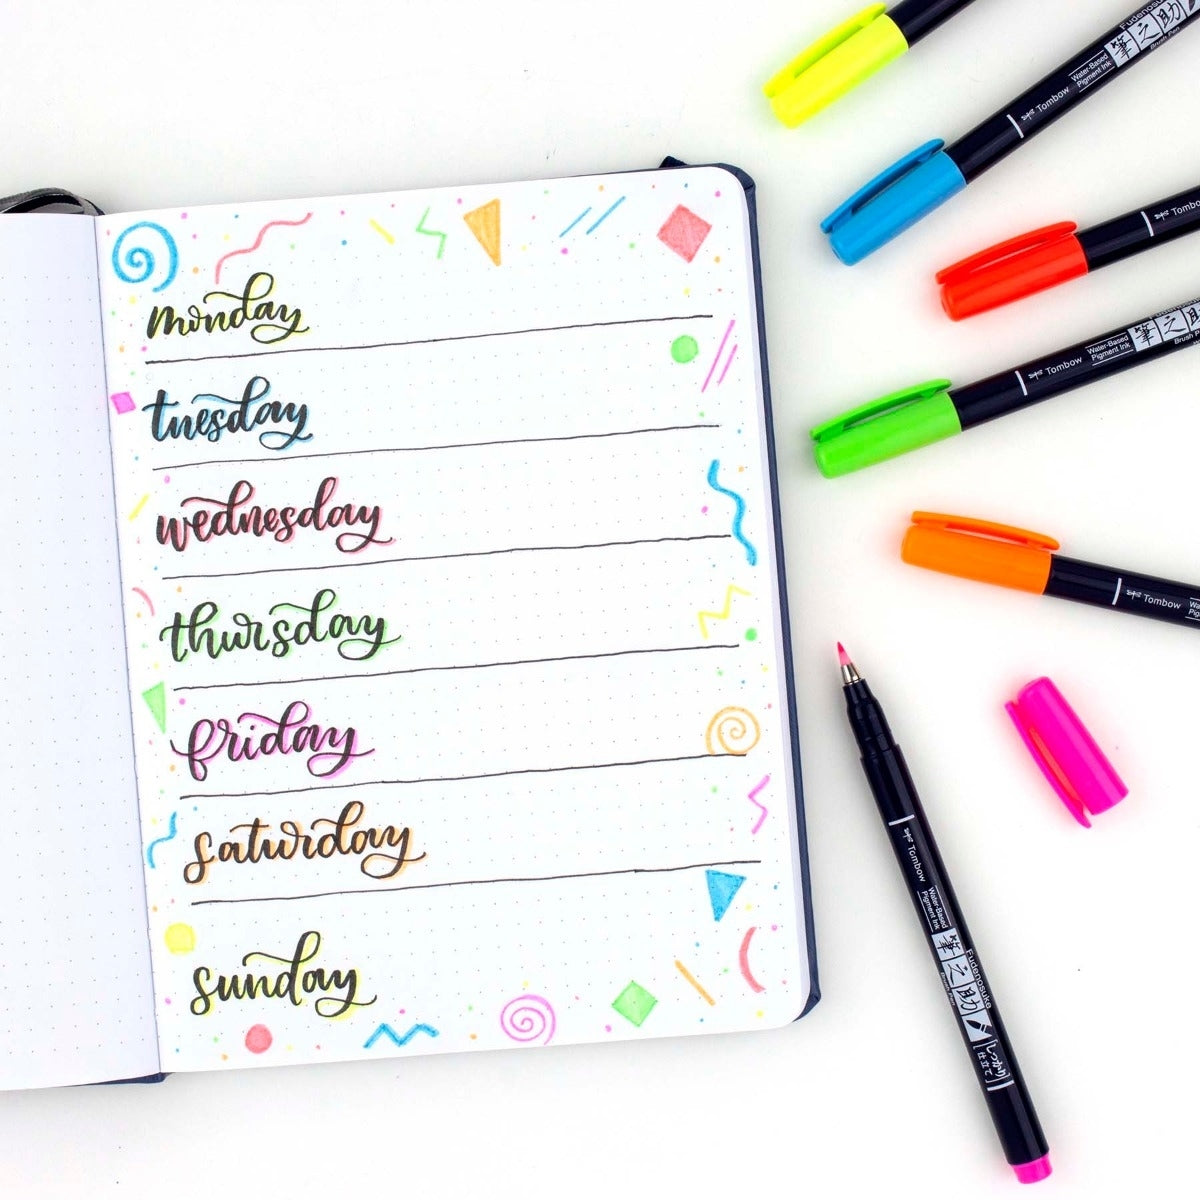 monday
tuesday
wednesday
thursday
friday
saturday
sunday
Fudenosuke
筆之助
Brush Pen
Water-Based
Pigment Ink
Tombow
Tombow
筆之助
Brush Pen
Water-Based
Pigment Ink
Tombow
Tombow
Tombow
Water-Based
Pigment Ink
筆之助
Fudenosuke
Brush Pen
しっかり
仕立て